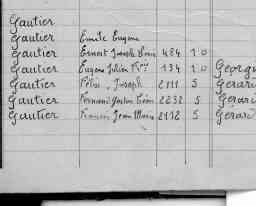 Gautier
Gautier Emile Eugène
Gautier Ernest Joseph 484 10
Gautier Eugène Julien 134 10 Georg
Gautier Félix Joseph 2111 5 Gérar
Gautier Fernand Gaston Léon 2232 5 Gérar
Gautier Francis Jean Marie 2132 5 Gérard